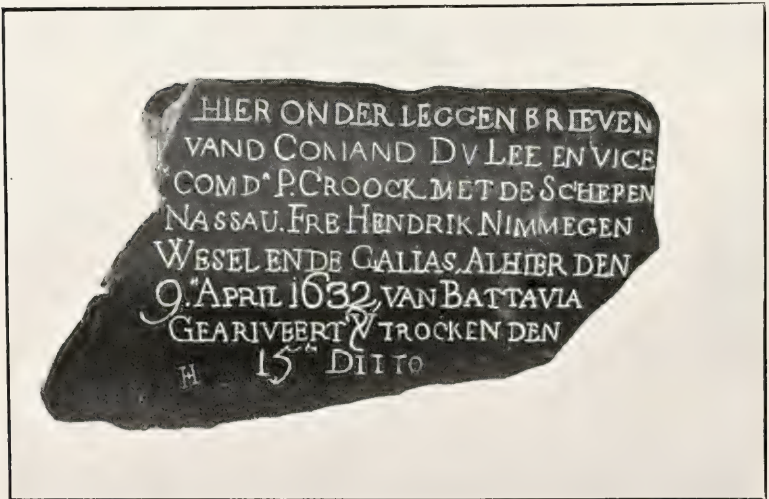 HIER ONDER LEGGEN BRIEVEN
VAND COMAND DV LEE EN VICE
COMDR P. CROOCK MET DE SCHEPEN
NASSAU. FRE HENDRIK NIMMEGEN
WESEL ENDE GALIAS. ALHIER DEN
9.EN APRIL 1632 VAN BATTAVIA
GEARIVEERT & VTROCKEN DEN
15EN DITTO
H